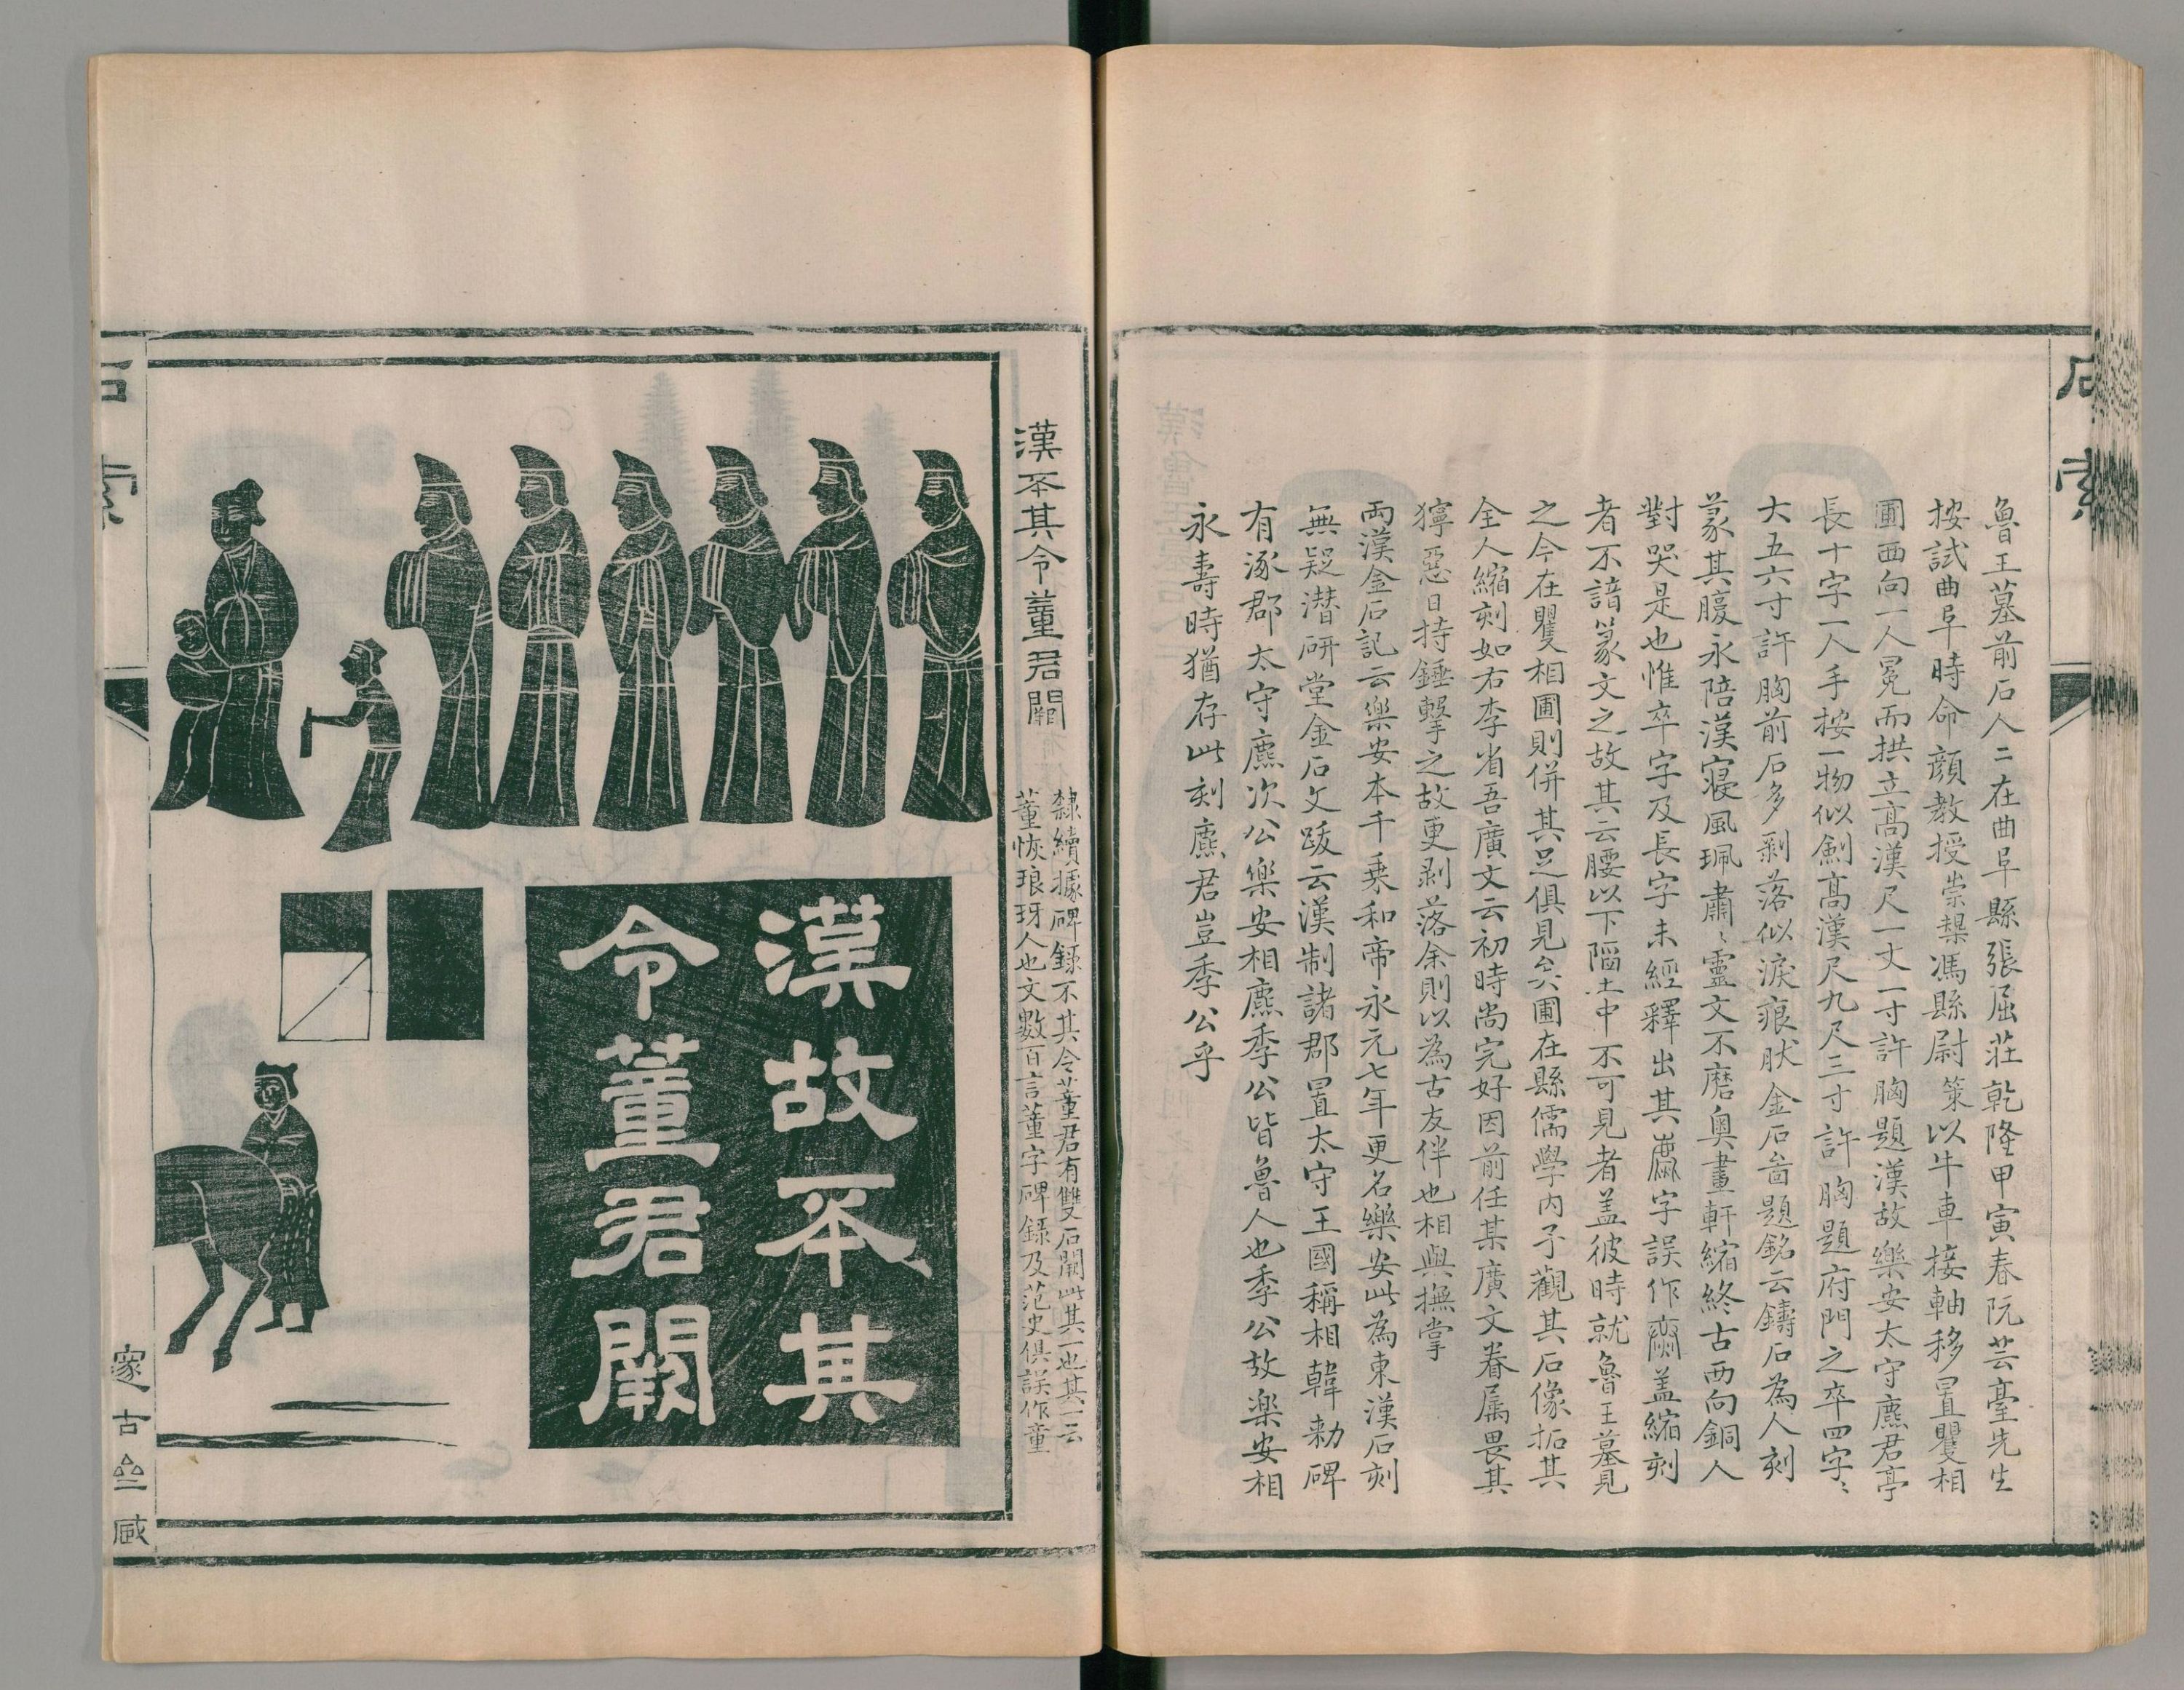 石索
魯王墓前石人二在曲阜縣張屈莊乾隆甲寅春阮芸臺先生
按試曲阜時命顏教授崇槼馮縣尉策以牛車接軸移置矍相
圃西向一人冕而拱立高漢尺一丈一寸許胸題漢故樂安太守麃君亭
長十字一人手按一物似劍高漢尺九尺三寸許胸題府門之卒四字〻
大五六寸許胸前石多剝落似淚痕狀金石啚題銘云鑄石為人刻
篆其腹永陪漢寢風珮肅〻靈文不磨奧畫軒縮終古西向銅人
對哭是也惟卒字及長字未經釋出其麃字誤作爾蓋縮刻
者不諳篆文之故其云腰以下陷土中不可見者盖彼時就魯王墓見
之今在矍相圃則併其足俱見矣圃在縣儒學內予觀其石像拓其
全人縮刻如右李省吾廣文云初時尚完好因前任某廣文眷屬畏其
獰惡日持錘擊之故更剥落余則以為古友伴也相與撫掌
兩漢金石記云樂安本千乘和帝永元七年更名樂安此為東漢石刻
無疑潜研堂金石文跋云漢制諸郡置太守王國稱相韓勑碑
有涿郡太守麃次公樂安相麃季公皆魯人也季公故樂安相
永壽時猶存此刻麃君豈季公乎
漢不其令董君闕
隸續據碑錄不其令董君有雙石闕此其一也其一云
董恢琅玡人也文數百言董字碑錄及范史俱誤作童
漢故不其
令董君闕
石索
邃古亝臧